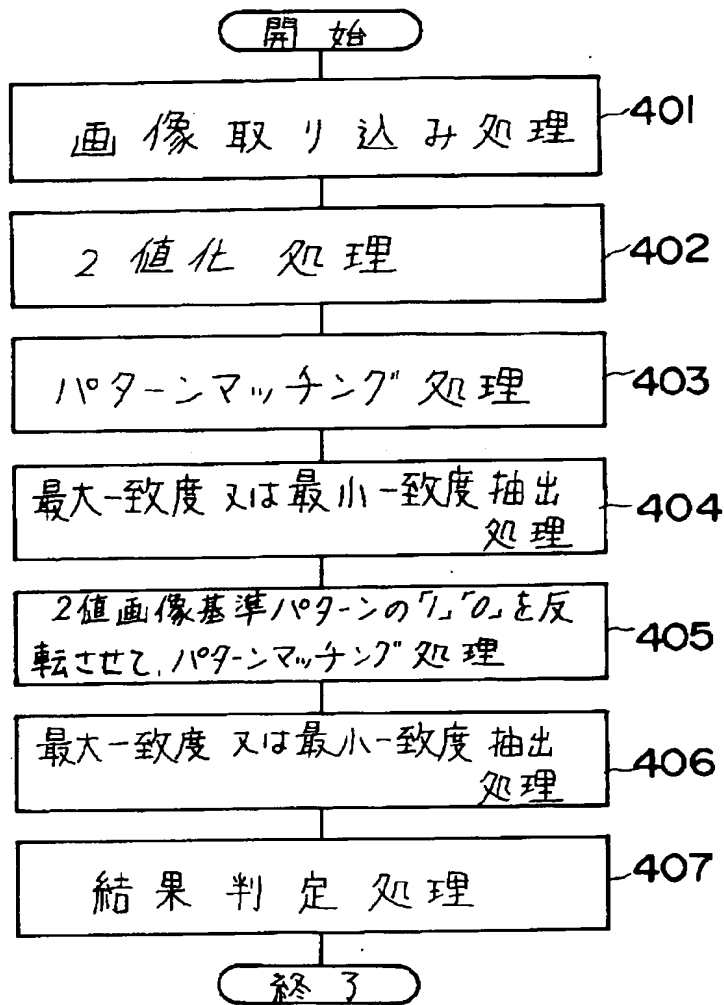 開始
画像取り込み処理
401
2値化処理
402
パターンマッチング処理
403
最大一致度又は最小一致度抽出
処理
404
2値画像基準パターンの「1」「0」を反
転させて、パターンマッチング処理
405
最大一致度又は最小一致度抽出
処理
406
結果判定処理
407
終了